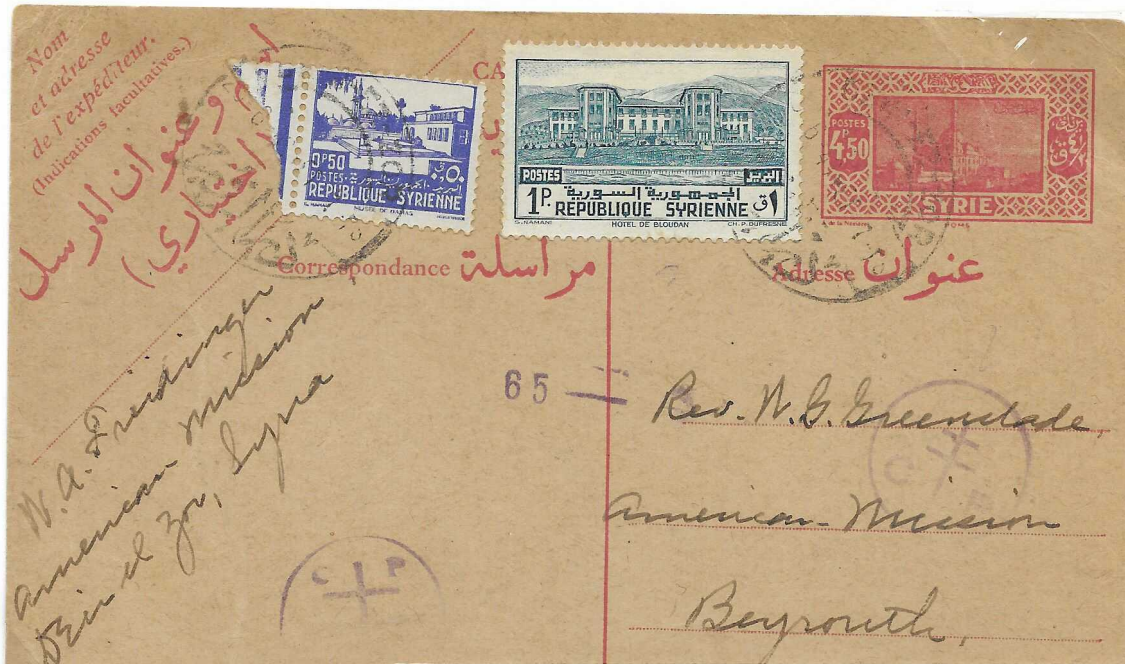 Nom
et adresse
de l'expéditeur.
(Indications facultatives.)
اسم و عنوان المرسل
(اختياري)
CA
0P50
POSTES
REPUBLIQUE SYRIENNE
MUSÉE DE DAMAS
POSTES
1P.
الجمهورية السورية
البريد
ق١
REPUBLIQUE SYRIENNE
HOTEL DE BLOUDAN
CH. P. DUFRESNE
POSTES
4P,50
SYRIE
Correspondance مراسلة
Adresse عنوان
65
W. A. Freidinger
American Mission
Deir el Zor, Syria
C I P
Rev. W. G. Greenslade,
American Mission
Beyrouth,